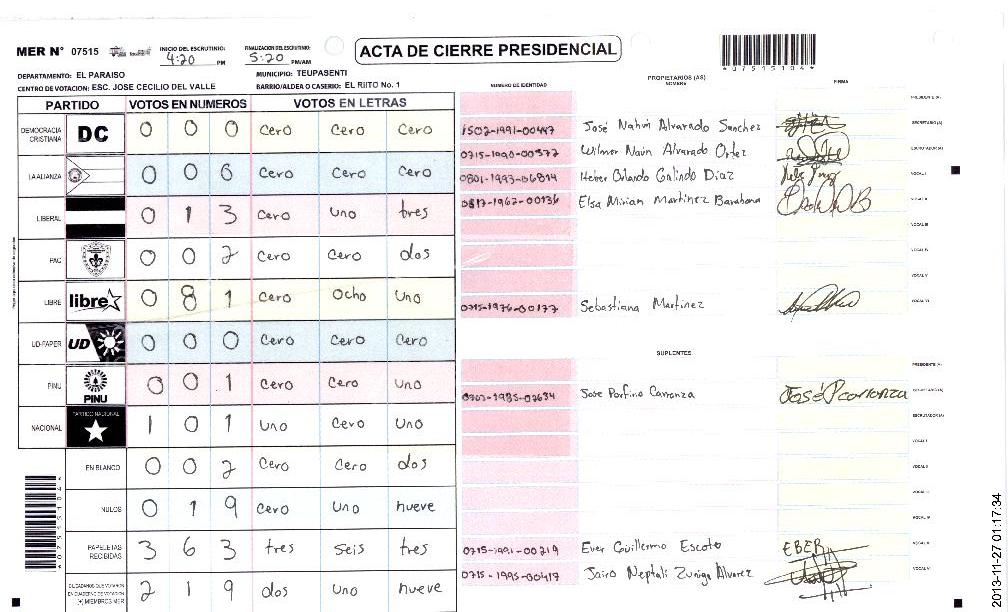 MER N° 07515
INICIO DEL ESCRUTINIO: 4:20 PM
FINALIZACION DEL ESCRUTINIO: 5:20 PM/AM
ACTA DE CIERRE PRESIDENCIAL
*07515104*
DEPARTAMENTO: EL PARAISO
MUNICIPIO: TEUPASENTI
CENTRO DE VOTACION: ESC. JOSE CECILIO DEL VALLE
BARRIO/ALDEA O CASERIO: EL RIITO No. 1
PARTIDO VOTOS EN NUMEROS VOTOS EN LETRAS
DEMOCRACIA CRISTIANA DC 0 0 0 Cero Cero Cero
LA ALIANZA 0 0 6 Cero Cero Cero
LIBERAL 0 1 3 Cero Uno tres
PAC 0 0 2 Cero Cero dos
LIBRE libre 0 8 1 Cero Ocho Uno
UD-FAPER UD 0 0 0 Cero Cero Cero
PINU PINU 0 0 1 Cero Cero Uno
NACIONAL PARTIDO NACIONAL 1 0 1 Uno Cero Uno
EN BLANCO 0 0 2 Cero Cero dos
NULOS 0 1 9 Cero Uno nueve
PAPELETAS RECIBIDAS 3 6 3 tres Seis tres
CIUDADANOS QUE VOTARON EN CUADERNO DE VOTACION (+) MIEMBROS MER 2 1 9 dos Uno nueve
NUMERO DE IDENTIDAD
PROPIETARIOS (AS)
NOMBRE
FIRMA
PRESIDENTE (A)
1502-1991-00447 José Nahin Alvarado Sanchez SECRETARIO (A)
0715-1990-00577 Wilmer Naún Alvarado Ortez ESCRUTADOR (A)
0801-1993-06814 Heber Orlando Galindo Diaz VOCAL I
0817-1962-00136 Elsa Mirian Martinez Barahona VOCAL II
VOCAL III
VOCAL IV
VOCAL V
0715-1976-00177 Sebastiana Martinez VOCAL VI
SUPLENTES
PRESIDENTE (A)
0703-1985-02634 Jose Porfirio Carranza José P carranza SECRETARIO (A)
ESCRUTADOR (A)
VOCAL I
VOCAL II
VOCAL III
VOCAL IV
0715-1991-00219 Ever Guillermo Escoto EBER VOCAL V
0715-1995-00417 Jairo Neptali Zuniga Alvarez VOCAL VI
*07515104*
2013-11-27 01:17:34